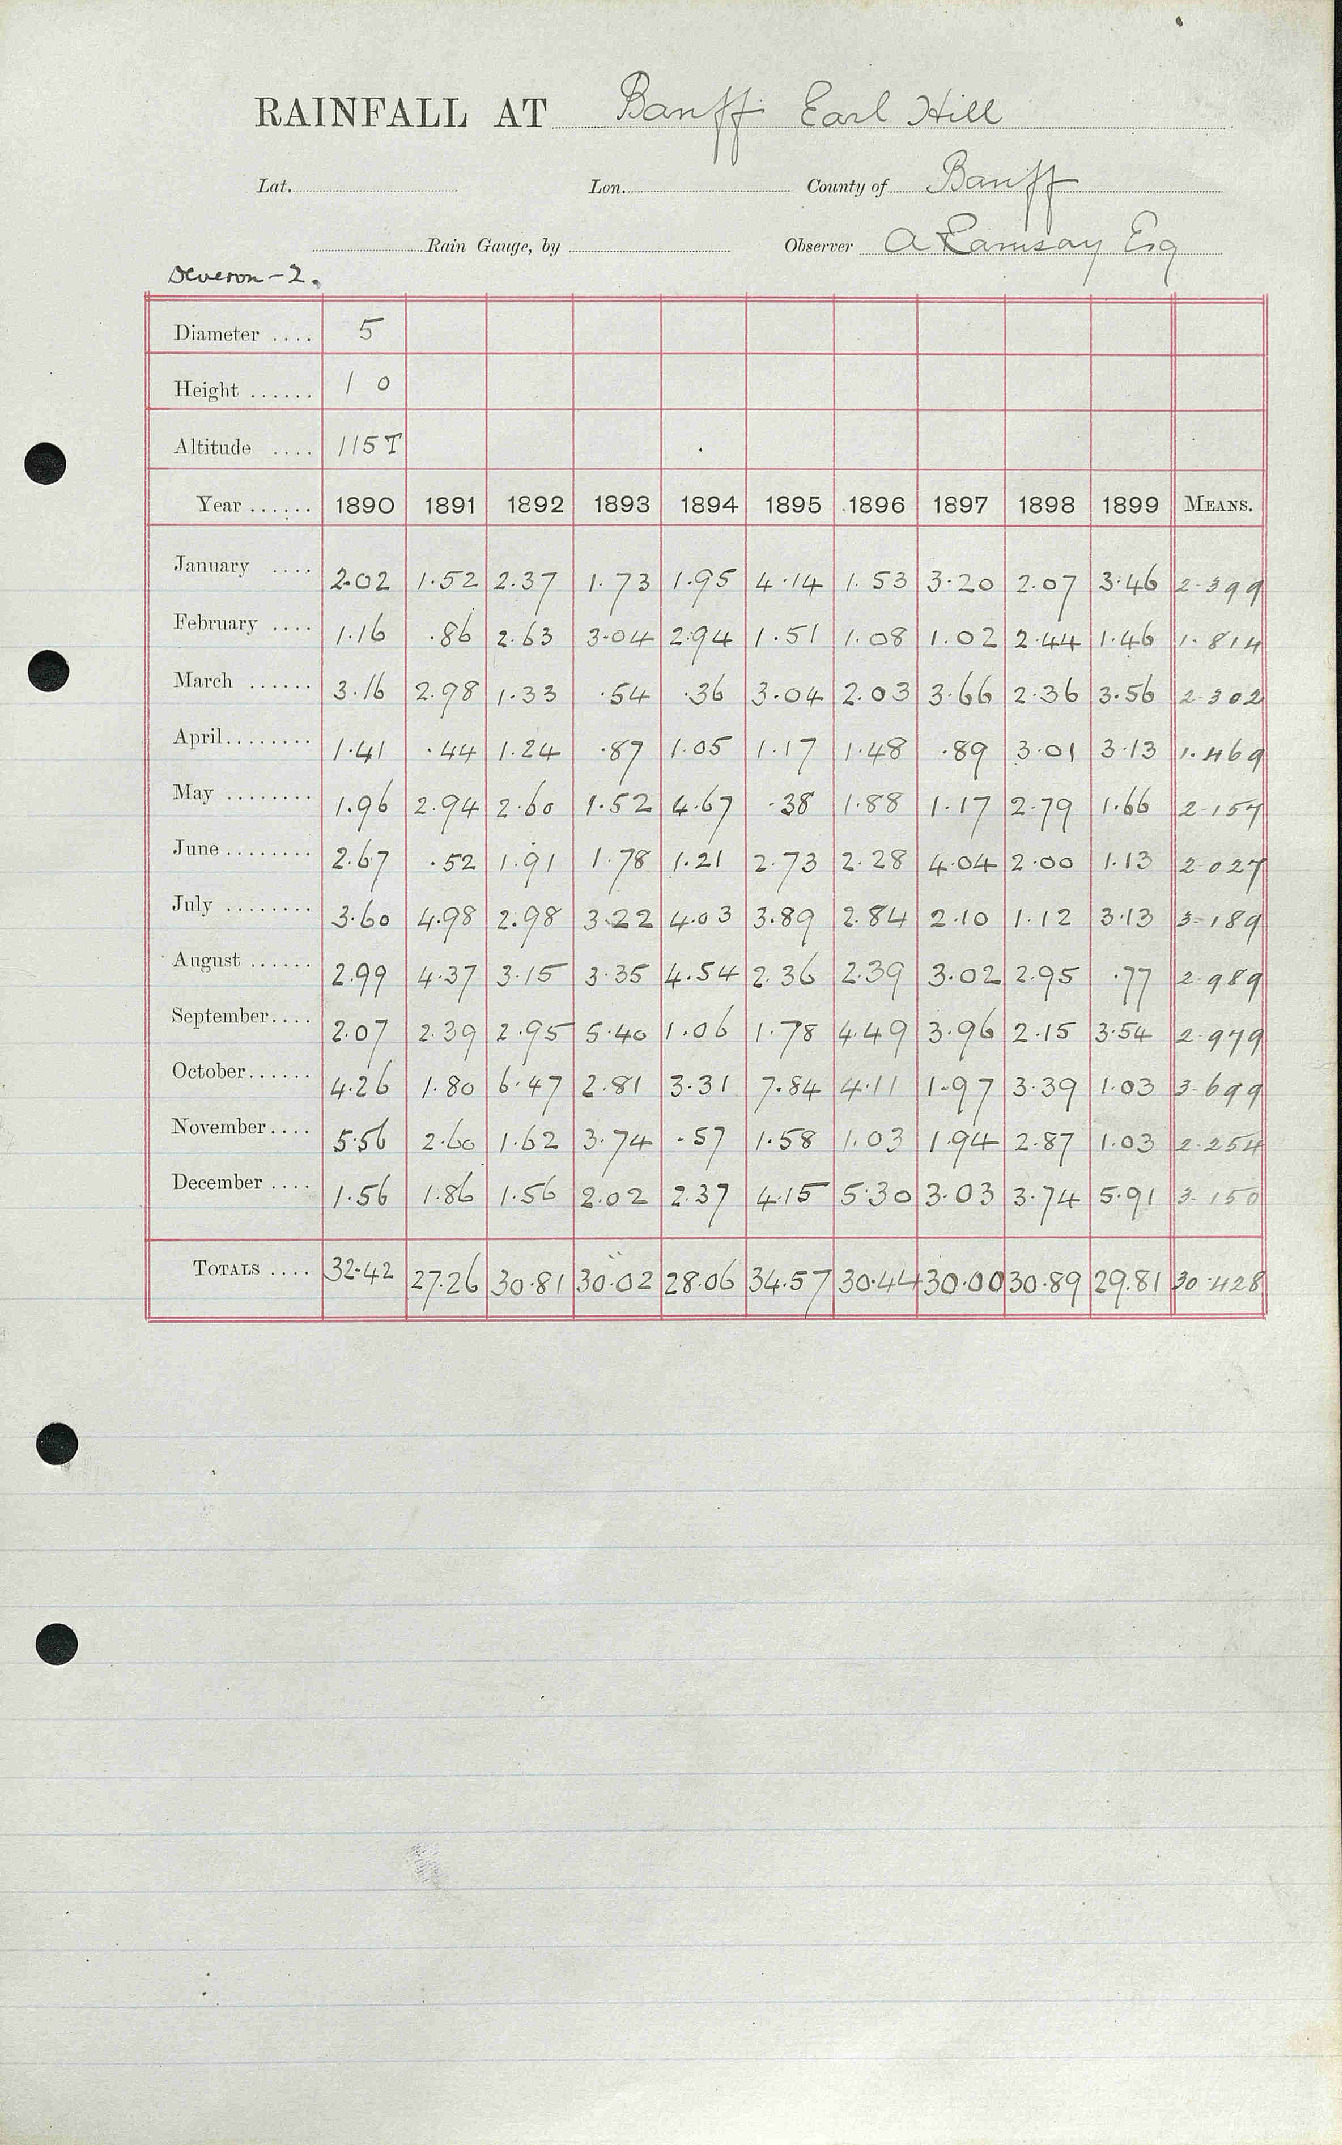 RAINFALL AT Banff Earl Hill
Lat. Lon. County of Banff
Rain Gauge, by Observer A Ramsay Esq
Deveron - 2.
Diameter .... 5
Height ...... 1 0
Altitude .... 115T
Year ...... 1890 1891 1892 1893 1894 1895 1896 1897 1898 1899 MEANS.
January .... 2.02 1.52 2.37 1.73 1.95 4.14 1.53 3.20 2.07 3.46 2.399
February .... 1.16 .86 2.63 3.04 2.94 1.51 1.08 1.02 2.44 1.46 1.814
March ...... 3.16 2.98 1.33 .54 .36 3.04 2.03 3.66 2.36 3.56 2.302
April........ 1.41 .44 1.24 .87 1.05 1.17 1.48 .89 3.01 3.13 1.469
May ........ 1.96 2.94 2.60 1.52 4.67 .38 1.88 1.17 2.79 1.66 2.157
June ........ 2.67 .52 1.91 1.78 1.21 2.73 2.28 4.04 2.00 1.13 2.027
July ........ 3.60 4.98 2.98 3.22 4.03 3.89 2.84 2.10 1.12 3.13 3.189
August ...... 2.99 4.37 3.15 3.35 4.54 2.36 2.39 3.02 2.95 .77 2.989
September.... 2.07 2.39 2.95 5.40 1.06 1.78 4.49 3.96 2.15 3.54 2.979
October...... 4.26 1.80 6.47 2.81 3.31 7.84 4.11 1.97 3.39 1.03 3.699
November.... 5.56 2.60 1.62 3.74 .57 1.58 1.03 1.94 2.87 1.03 2.254
December .... 1.56 1.86 1.56 2.02 2.37 4.15 5.30 3.03 3.74 5.91 3.150
TOTALS .... 32.42 27.26 30.81 30.02 28.06 34.57 30.44 30.00 30.89 29.81 30.428